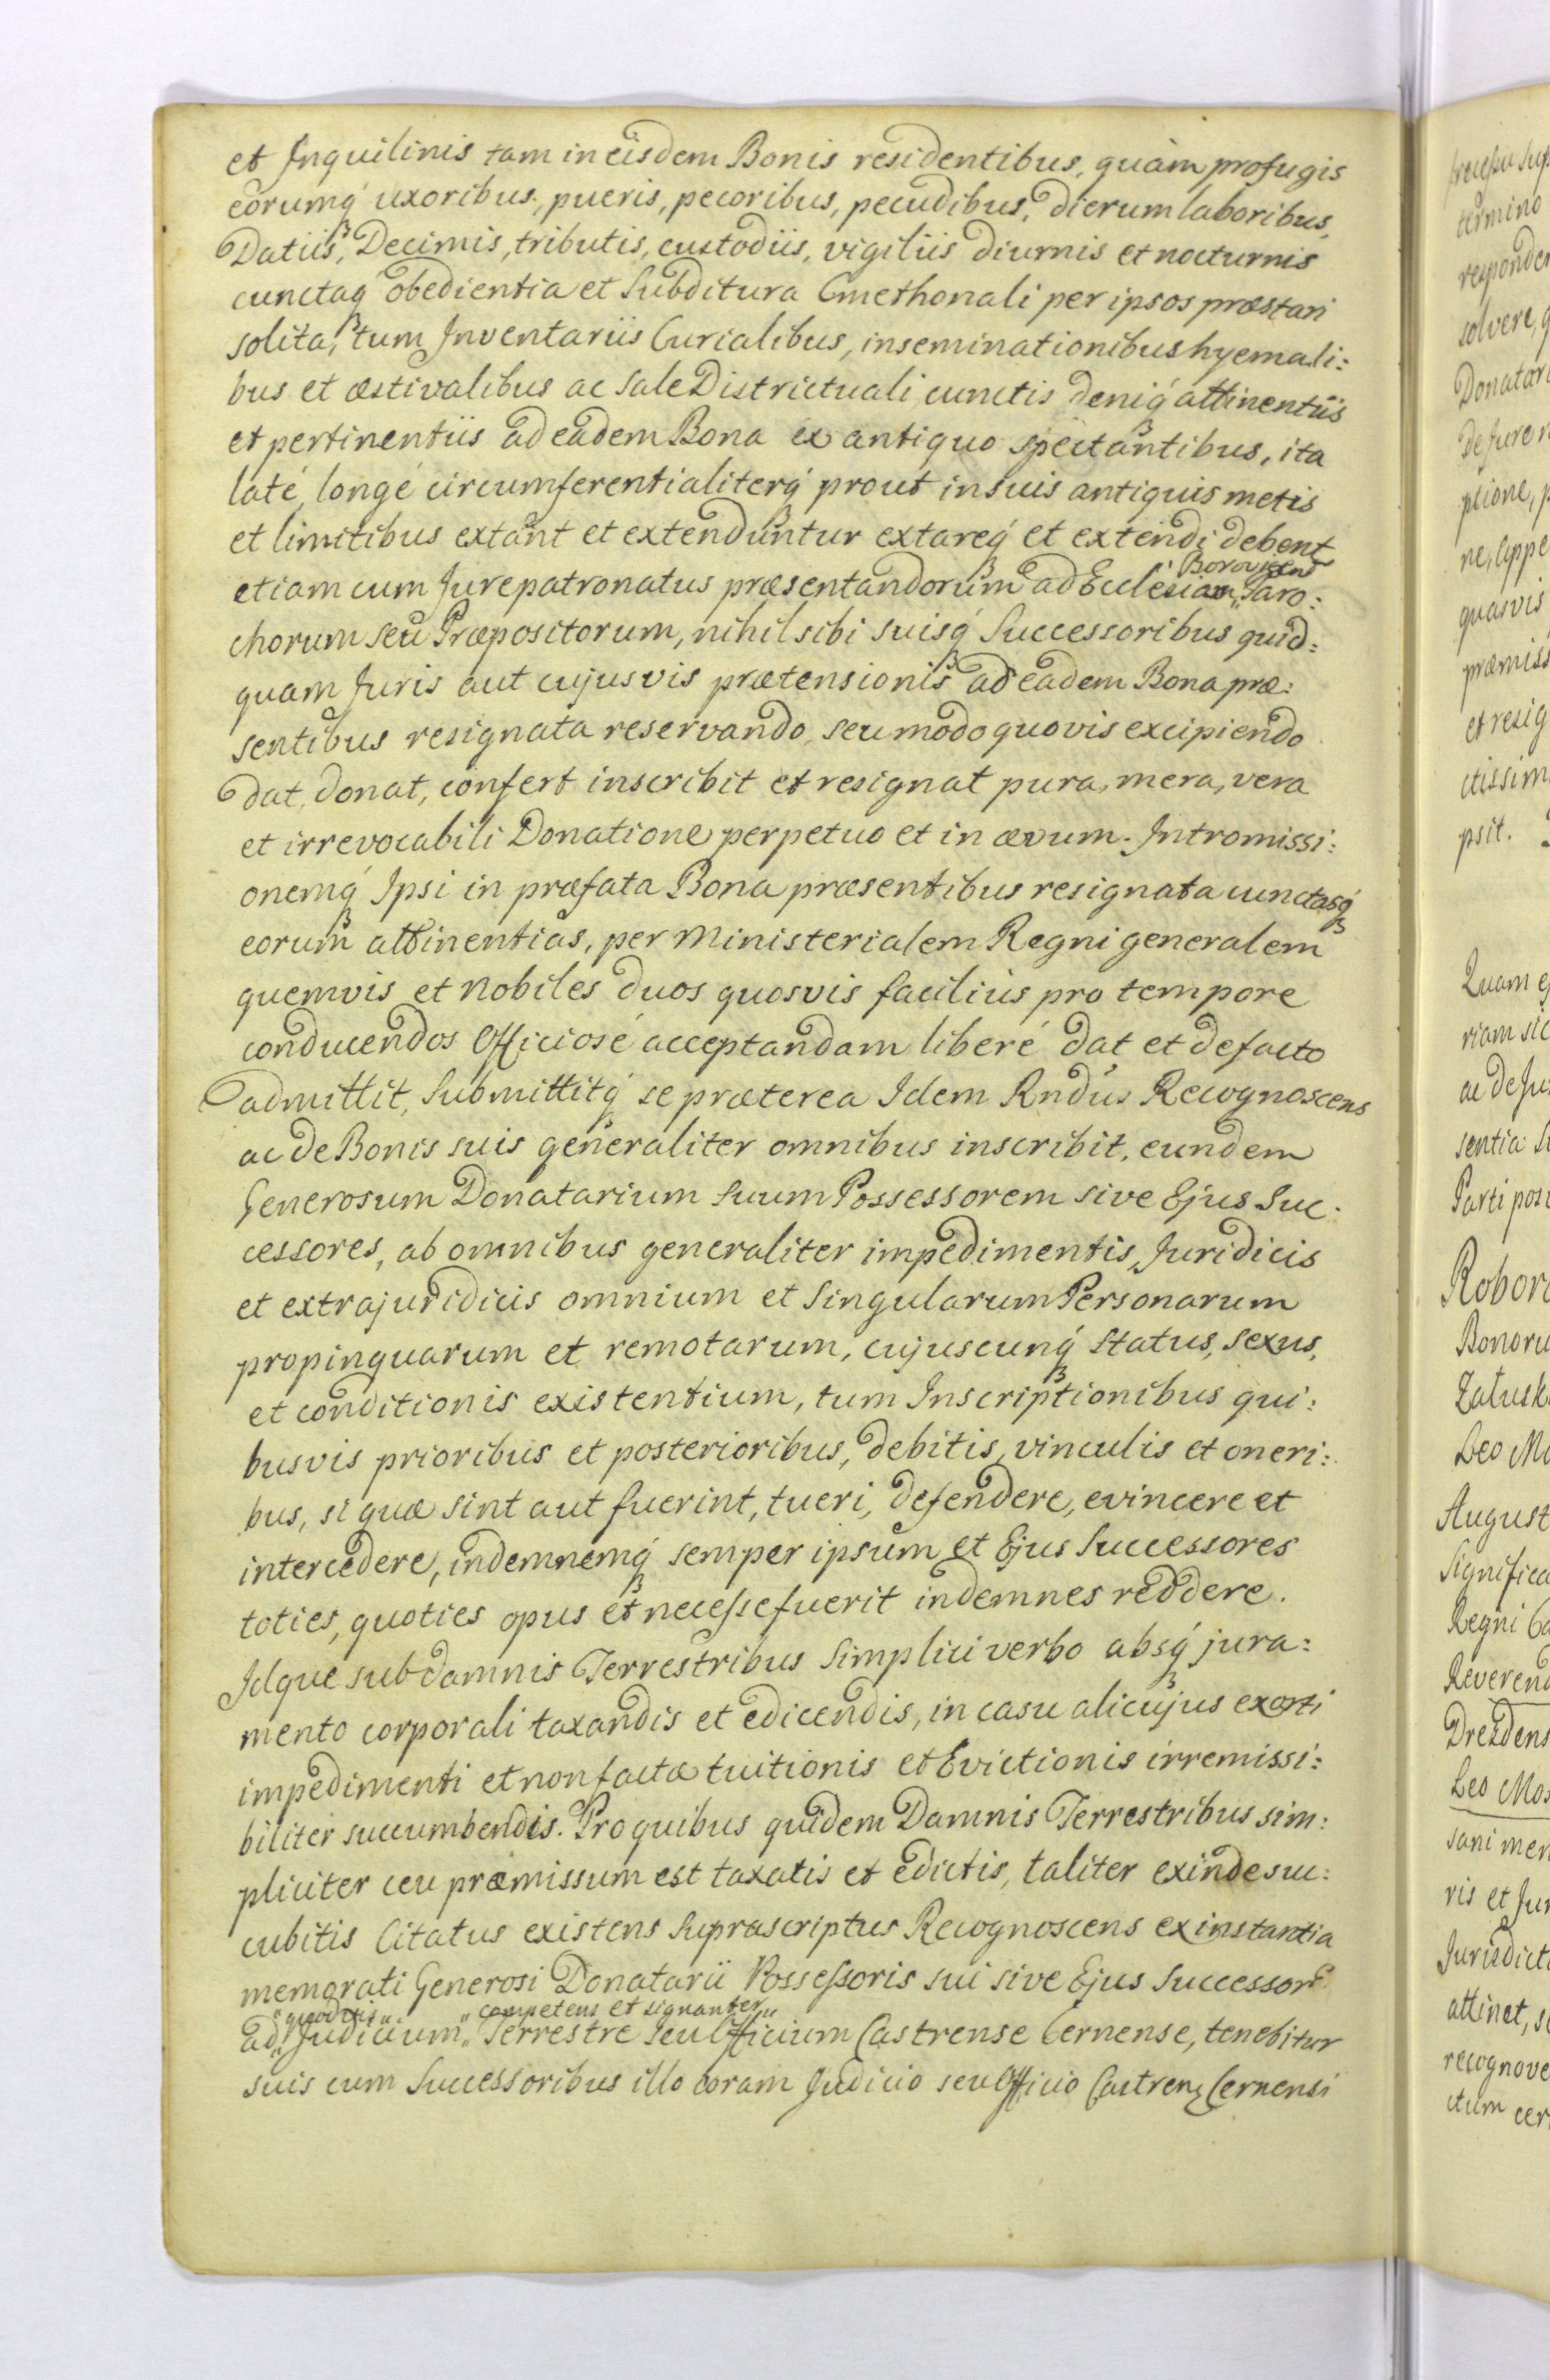 et Inquilinis tam in eisdem Bonis residentibus, quàm profugis
eorumq́ uxoribus, pueris, pecoribus, pecudibus, dierum laboribus,
Datiis, Decimis, tributis, custodiis, vigiliis diurnis et nocturnis
cunctaq́ obedientia et Subditura Cmethonali per ipsos præstari
solita, tum Inventariis Curialibus, inseminationibus hyemali:
bus et æstivalibus ac Sale Districtuali cunctis deniq́ attinentiis
et pertinentiis ad eadem Bona ex antiquo spectantibus, ita
laté, longé circumferentialiterq́ prout in suis antiquis metis
et limitibus extant et extenduntur extareq́ et extendi debent
etiam cum Jure patronatus præsentandorum ad Ecclesiam Paro:
chorum seu Præpositorum, nihil sibi suisq́ Successoribus quid:
quam Juris aut cujusvis prætensionis ad eadem Bona præ:
sentibus resignata reservando, seu modo quovis excipiendo
dat, donat, confert inscribit et resignat pura, mera, vera
et irrevocabili Donatione perpetuo et in ævum. Intromissi:
onemq́ Ipsi in præfata Bona præsentibus resignata cunctasq́
eorum attinentias, per Ministerialem Regni generalem
quemvis et Nobiles duos quosvis facilius pro tempore
conducendos Officiosé acceptandam liberé dat et de facto
admittit, Submittitq́ se præterea Idem Rndus Recognoscens
ac de Bonis suis generaliter omnibus inscribit, eundem
Generosum Donatarium Suum Possessorem sive Ejus Suc:
cessores, ab omnibus generaliter impedimentis, Juridicis
et extrajuridicis omnium et Singularum Personarum
propinquarum et remotarum, cujuscunq́ Status, Sexus,
et conditionis existentium, tum Inscriptionibus qui:
busvis prioribus et posterioribus, debitis, vinculis et oneri:
bus, si quæ sint aut fuerint, tueri, defendere, evincere et
intercedere, indemnemq́ semper ipsum et Ejus Successores
toties, quoties opus et necesse fuerit indemnes reddere.
Idque sub damnis Terrestribus simplici verbo absq́ jura:
mento corporali taxandis et edicendis, in casu alicujus exorti
impedimenti et non factæ tuitionis et Evictionis irremissi:
biliter succumbendis. Pro quibus quidem Damnis Terrestribus sim:
pliciter ceu præmissum est taxatis et edictis, taliter exinde suc:
cubitis Citatus existens Suprascriptus Recognoscens ex instantia
memorati Generosi Donatarii Possessoris sui sive Ejus Successorum
competens et signanter
ad Judicium Terrestre seu Officium Castrense Cernense, tenebitur
suis cum Successoribus illo coram Judicio seu Officio Castren Cernensi